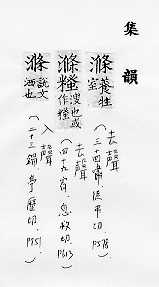 集韻
滌養牲室
去聲
(三十四嘯 徒弔切 P578)
滌糔溲也或作糔
去聲
(四十九宥 息救切 P613)
滌說文洒也
入聲
(二十三錫 亭歷切 P751)